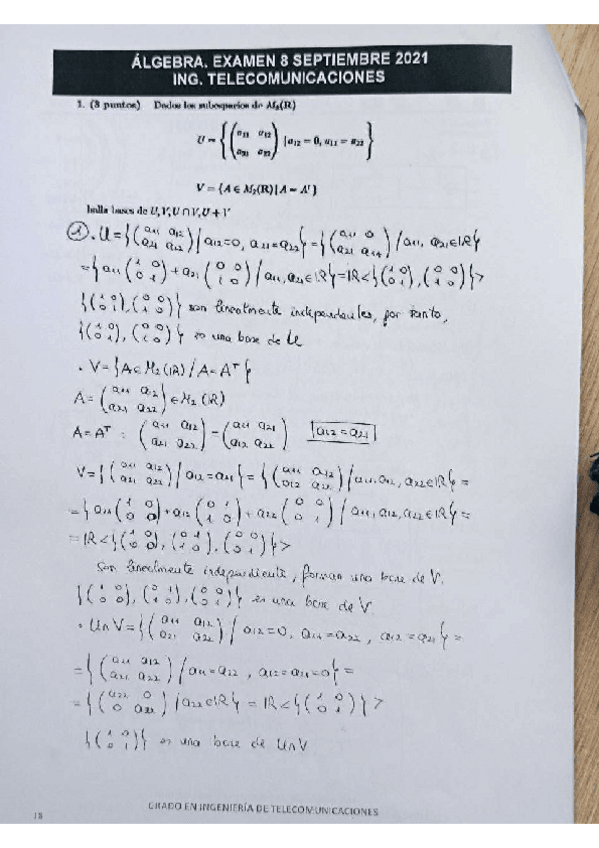 ÁLGEBRA. EXAMEN 8 SEPTIEMBRE 2021
ING. TELECOMUNICACIONES
1. (3 puntos) Dados los subespacios de M₂(R)
U = { ( a₁₁ a₁₂ ; a₂₁ a₂₂ ) | a₁₂ = 0, a₁₁ = a₂₂ }
V = {A ∈ M₂(R) | A = Aᵗ}
halla bases de U, V, U ∩ V, U + V
① . U = { ( a₁₁ a₁₂ ; a₂₁ a₂₂ ) / a₁₂=0, a₁₁=a₂₂ } = { ( a₁₁ 0 ; a₂₁ a₁₁ ) / a₁₁, a₂₁ ∈ IR }
= { a₁₁ ( 1 0 ; 0 1 ) + a₂₁ ( 0 0 ; 1 0 ) / a₁₁, a₂₁ ∈ IR } = IR < { ( 1 0 ; 0 1 ), ( 0 0 ; 1 0 ) } >
{ ( 1 0 ; 0 1 ), ( 0 0 ; 1 0 ) } son linealmente independientes, por tanto,
{ ( 1 0 ; 0 1 ), ( 0 0 ; 1 0 ) } es una base de U
. V = { A ∈ M₂(IR) / A = Aᵀ }
A = ( a₁₁ a₁₂ ; a₂₁ a₂₂ ) ∈ M₂(IR)
A = Aᵀ : ( a₁₁ a₁₂ ; a₂₁ a₂₂ ) = ( a₁₁ a₂₁ ; a₁₂ a₂₂ ) a₁₂ = a₂₁
V = { ( a₁₁ a₁₂ ; a₂₁ a₂₂ ) / a₁₂ = a₂₁ } = { ( a₁₁ a₁₂ ; a₁₂ a₂₂ ) / a₁₁, a₁₂, a₂₂ ∈ IR } =
= { a₁₁ ( 1 0 ; 0 0 ) + a₁₂ ( 0 1 ; 1 0 ) + a₂₂ ( 0 0 ; 0 1 ) / a₁₁, a₁₂, a₂₂ ∈ IR } =
= IR < { ( 1 0 ; 0 0 ), ( 0 1 ; 1 0 ), ( 0 0 ; 0 1 ) } >
Son linealmente independiente, forman una base de V.
{ ( 1 0 ; 0 0 ), ( 0 1 ; 1 0 ), ( 0 0 ; 0 1 ) } es una base de V
. U∩V = { ( a₁₁ a₁₂ ; a₂₁ a₂₂ ) / a₁₂=0, a₁₁=a₂₂, a₁₂=a₂₁ } =
= { ( a₁₁ a₁₂ ; a₂₁ a₂₂ ) / a₁₁=a₂₂, a₁₂=a₂₁=0 } =
= { ( a₂₂ 0 ; 0 a₂₂ ) / a₂₂ ∈ IR } = IR < { ( 1 0 ; 0 1 ) } >
{ ( 1 0 ; 0 1 ) } es una base de U∩V
GRADO EN INGENIERÍA DE TELECOMUNICACIONES
18